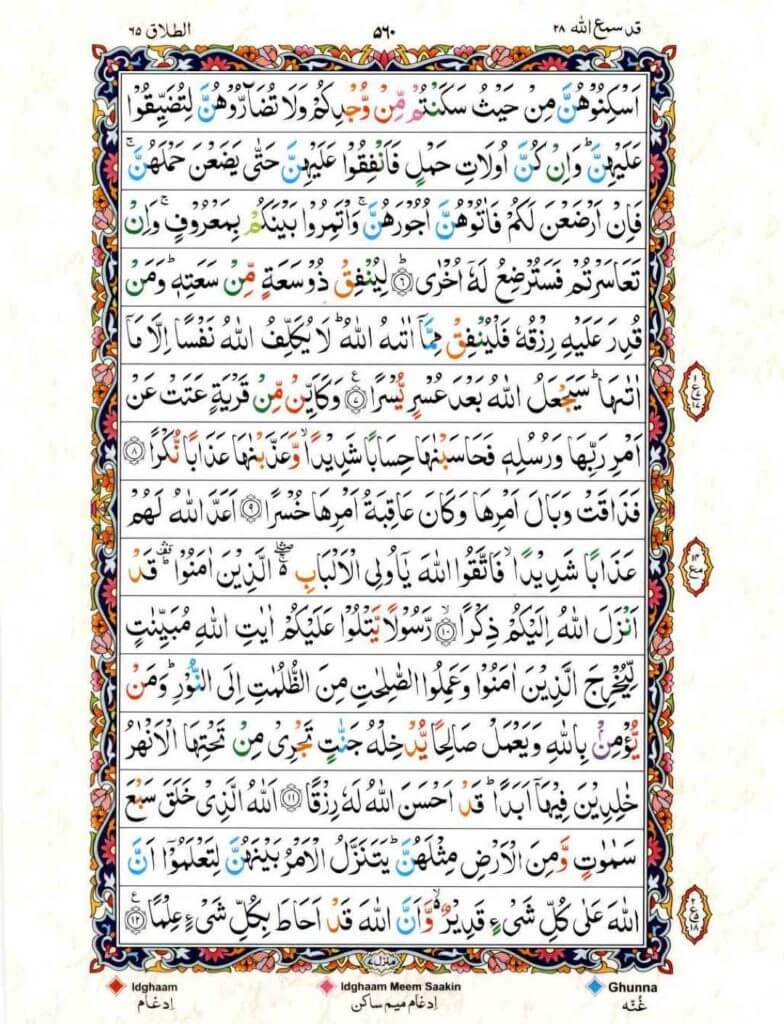 قد سمع الله ۲۸
۵۶۰
الطلاق ۶۵
اَسْكِنُوْهُنَّ مِنْ حَيْثُ سَكَنْتُمْ مِّنْ وُّجْدِكُمْ وَلَا تُضَآرُّوْهُنَّ لِتُضَيِّقُوْا
عَلَيْهِنَّ ؕ وَاِنْ كُنَّ اُولَاتِ حَمْلٍ فَاَنْفِقُوْا عَلَيْهِنَّ حَتّٰى يَضَعْنَ حَمْلَهُنَّ ۚ
فَاِنْ اَرْضَعْنَ لَكُمْ فَاٰتُوْهُنَّ اُجُوْرَهُنَّ ۚ وَاْتَمِرُوْا بَيْنَكُمْ بِمَعْرُوْفٍ ۚ وَاِنْ
تَعَاسَرْتُمْ فَسَتُرْضِعُ لَهٗۤ اُخْرٰى ؕ ۶ لِيُنْفِقْ ذُوْ سَعَةٍ مِّنْ سَعَتِهٖ ؕ وَمَنْ
قُدِرَ عَلَيْهِ رِزْقُهٗ فَلْيُنْفِقْ مِمَّاۤ اٰتٰىهُ اللّٰهُ ؕ لَا يُكَلِّفُ اللّٰهُ نَفْسًا اِلَّا مَاۤ
اٰتٰىهَا ؕ سَيَجْعَلُ اللّٰهُ بَعْدَ عُسْرٍ يُّسْرًا ۷ وَكَاَيِّنْ مِّنْ قَرْيَةٍ عَتَتْ عَنْ
اَمْرِ رَبِّهَا وَرُسُلِهٖ فَحَاسَبْنٰهَا حِسَابًا شَدِيْدًا ۙ وَّعَذَّبْنٰهَا عَذَابًا نُّكْرًا ۸
فَذَاقَتْ وَبَالَ اَمْرِهَا وَكَانَ عَاقِبَةُ اَمْرِهَا خُسْرًا ۹ اَعَدَّ اللّٰهُ لَهُمْ
عَذَابًا شَدِيْدًا ۙ فَاتَّقُوا اللّٰهَ يٰۤاُولِى الْاَلْبَابِ ۛۚ الَّذِيْنَ اٰمَنُوْا ۛؕ قَدْ
اَنْزَلَ اللّٰهُ اِلَيْكُمْ ذِكْرًا ۙ ۱۰ رَّسُوْلًا يَّتْلُوْا عَلَيْكُمْ اٰيٰتِ اللّٰهِ مُبَيِّنٰتٍ
لِّيُخْرِجَ الَّذِيْنَ اٰمَنُوْا وَعَمِلُوا الصّٰلِحٰتِ مِنَ الظُّلُمٰتِ اِلَى النُّوْرِ ؕ وَمَنْ
يُّؤْمِنْۢ بِاللّٰهِ وَيَعْمَلْ صَالِحًا يُّدْخِلْهُ جَنّٰتٍ تَجْرِىْ مِنْ تَحْتِهَا الْاَنْهٰرُ
خٰلِدِيْنَ فِيْهَاۤ اَبَدًا ؕ قَدْ اَحْسَنَ اللّٰهُ لَهٗ رِزْقًا ۱۱ اَللّٰهُ الَّذِىْ خَلَقَ سَبْعَ
سَمٰوٰتٍ وَّمِنَ الْاَرْضِ مِثْلَهُنَّ ؕ يَتَنَزَّلُ الْاَمْرُ بَيْنَهُنَّ لِتَعْلَمُوْۤا اَنَّ
اللّٰهَ عَلٰى كُلِّ شَىْءٍ قَدِيْرٌ ۙ وَّاَنَّ اللّٰهَ قَدْ اَحَاطَ بِكُلِّ شَىْءٍ عِلْمًا ۱۲
منزل ۷
Idghaam
ادغام
Idghaam Meem Saakin
ادغام ميم ساكن
Ghunna
غُنّه